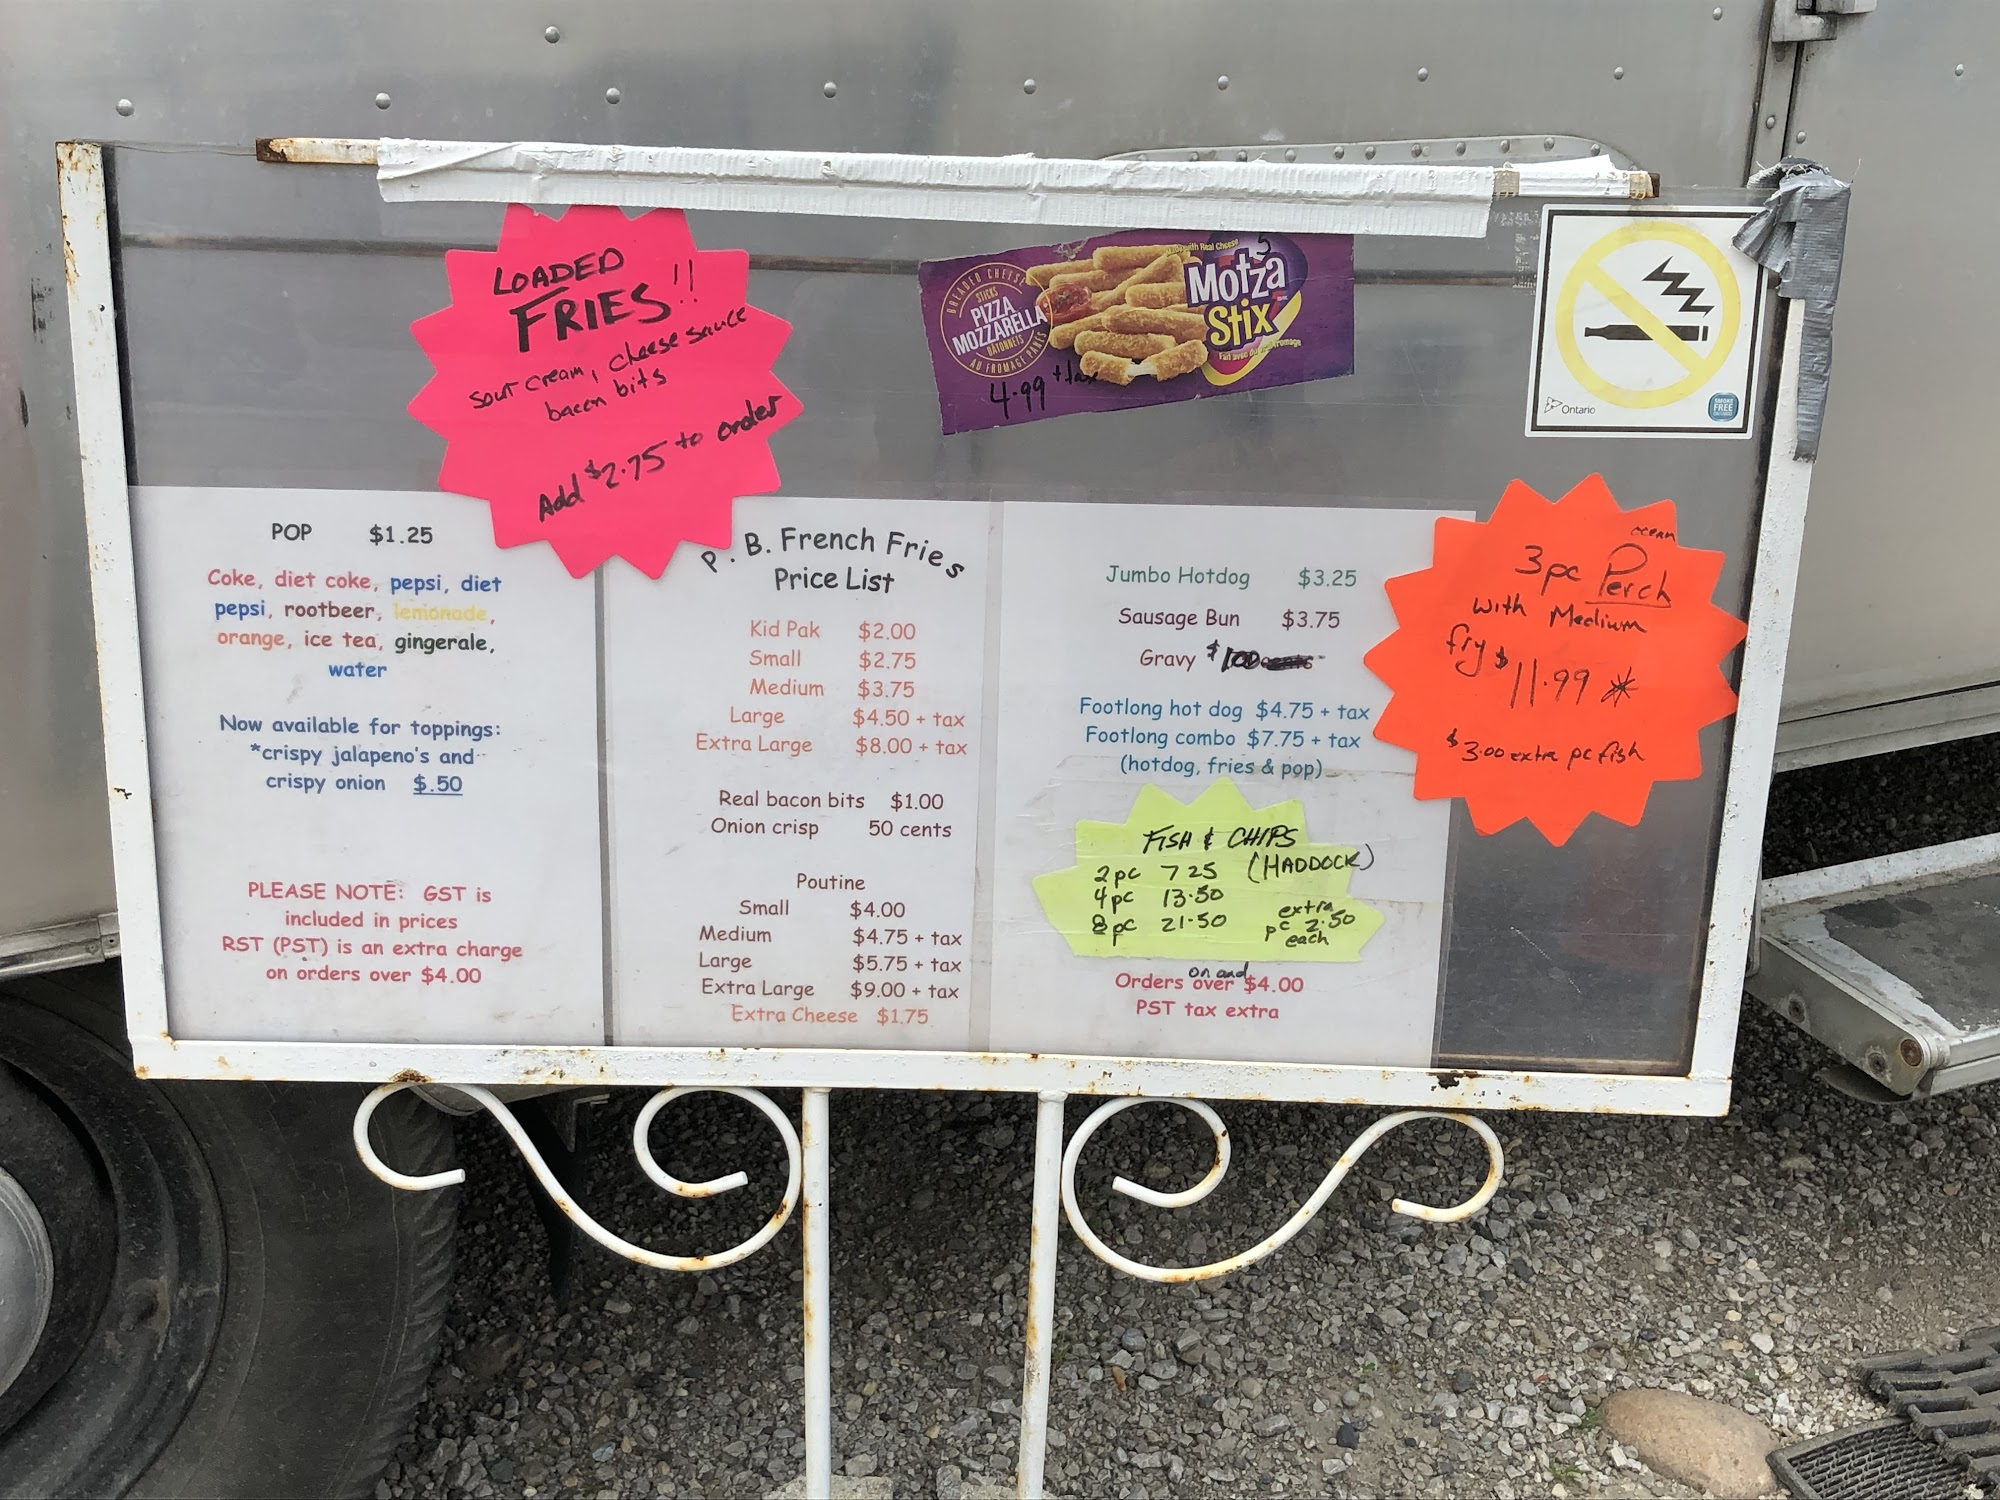 LOADED
FRIES!!
sour cream, cheese sauce
bacon bits
Add $2.75 to order
BREADED CHEESE
STICKS
PIZZA
MOZZARELLA
BATONNETS
AU FROMAGE PANÉS
with Real Cheese
5
Motza
Stix
Fait avec du fromage
4.99 + tax
Ontario
SMOKE
FREE
POP $1.25
Coke, diet coke, pepsi, diet
pepsi, rootbeer, lemonade,
orange, ice tea, gingerale,
water
Now available for toppings:
*crispy jalapeno's and
crispy onion $.50
PLEASE NOTE: GST is
included in prices
RST (PST) is an extra charge
on orders over $4.00
P. B. French Fries
Price List
Kid Pak $2.00
Small $2.75
Medium $3.75
Large $4.50 + tax
Extra Large $8.00 + tax
Real bacon bits $1.00
Onion crisp 50 cents
Poutine
Small $4.00
Medium $4.75 + tax
Large $5.75 + tax
Extra Large $9.00 + tax
Extra Cheese $1.75
Jumbo Hotdog $3.25
Sausage Bun $3.75
Gravy $1.00
Footlong hot dog $4.75 + tax
Footlong combo $7.75 + tax
(hotdog, fries & pop)
FISH & CHIPS
(HADDOCK)
2pc 7 25
4pc 13.50
8pc 21.50
extra
pc 2.50
each
on and
Orders over $4.00
PST tax extra
ocean
3pc Perch
with Medium
fry $11.99 *
$3.00 extra pc fish